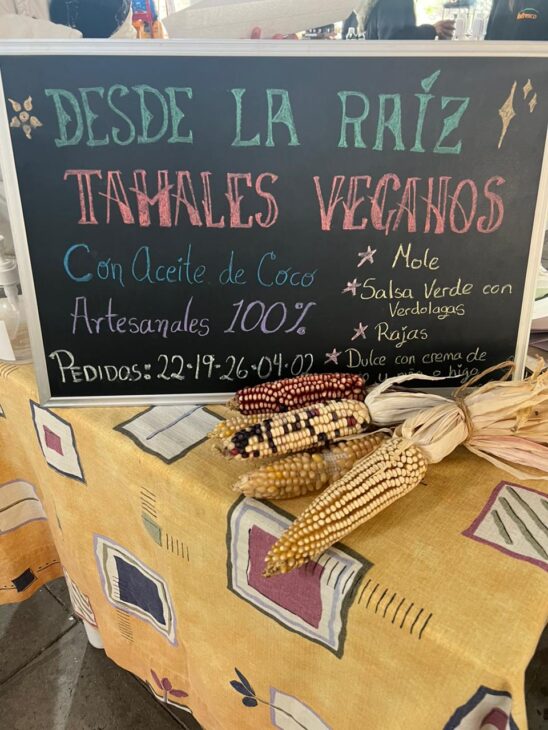 DESDE LA RAÍZ
TAMALES VEGANOS
Con Aceite de Coco
Artesanales 100%
PEDIDOS: 22-19-26-04-02
Mole
Salsa Verde con
Verdolagas
Rajas
Dulce con crema de
e higo